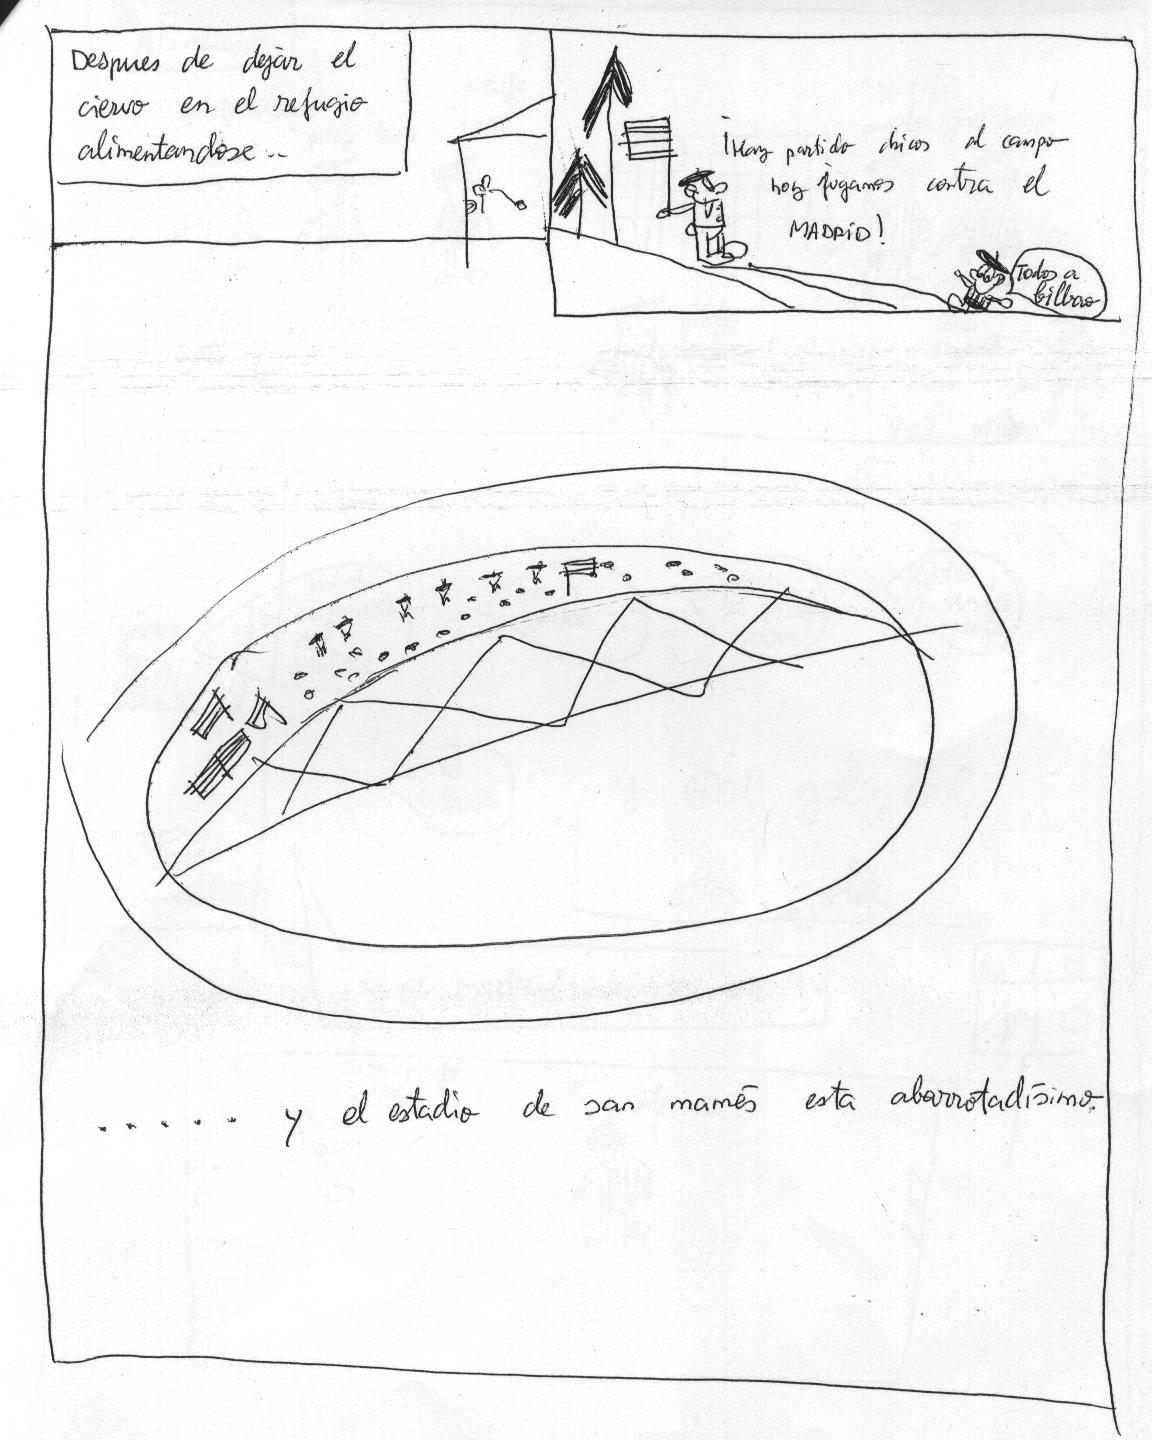 Despues de dejar el
ciervo en el refugio
alimentandose...
¡Hay partido chicos al campo
hoy jugamos contra el
MADRID!
Todos a
bilbao
..... y el estadio de san mamés esta abarrotadísimo.